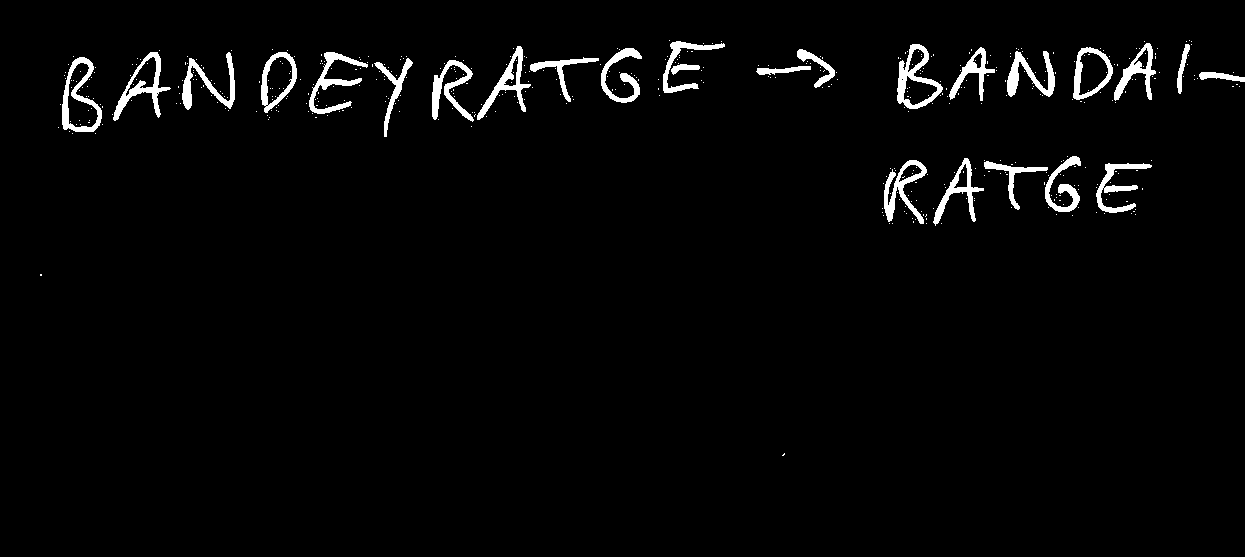 BANDEYRATGE → BANDAI-
RATGE